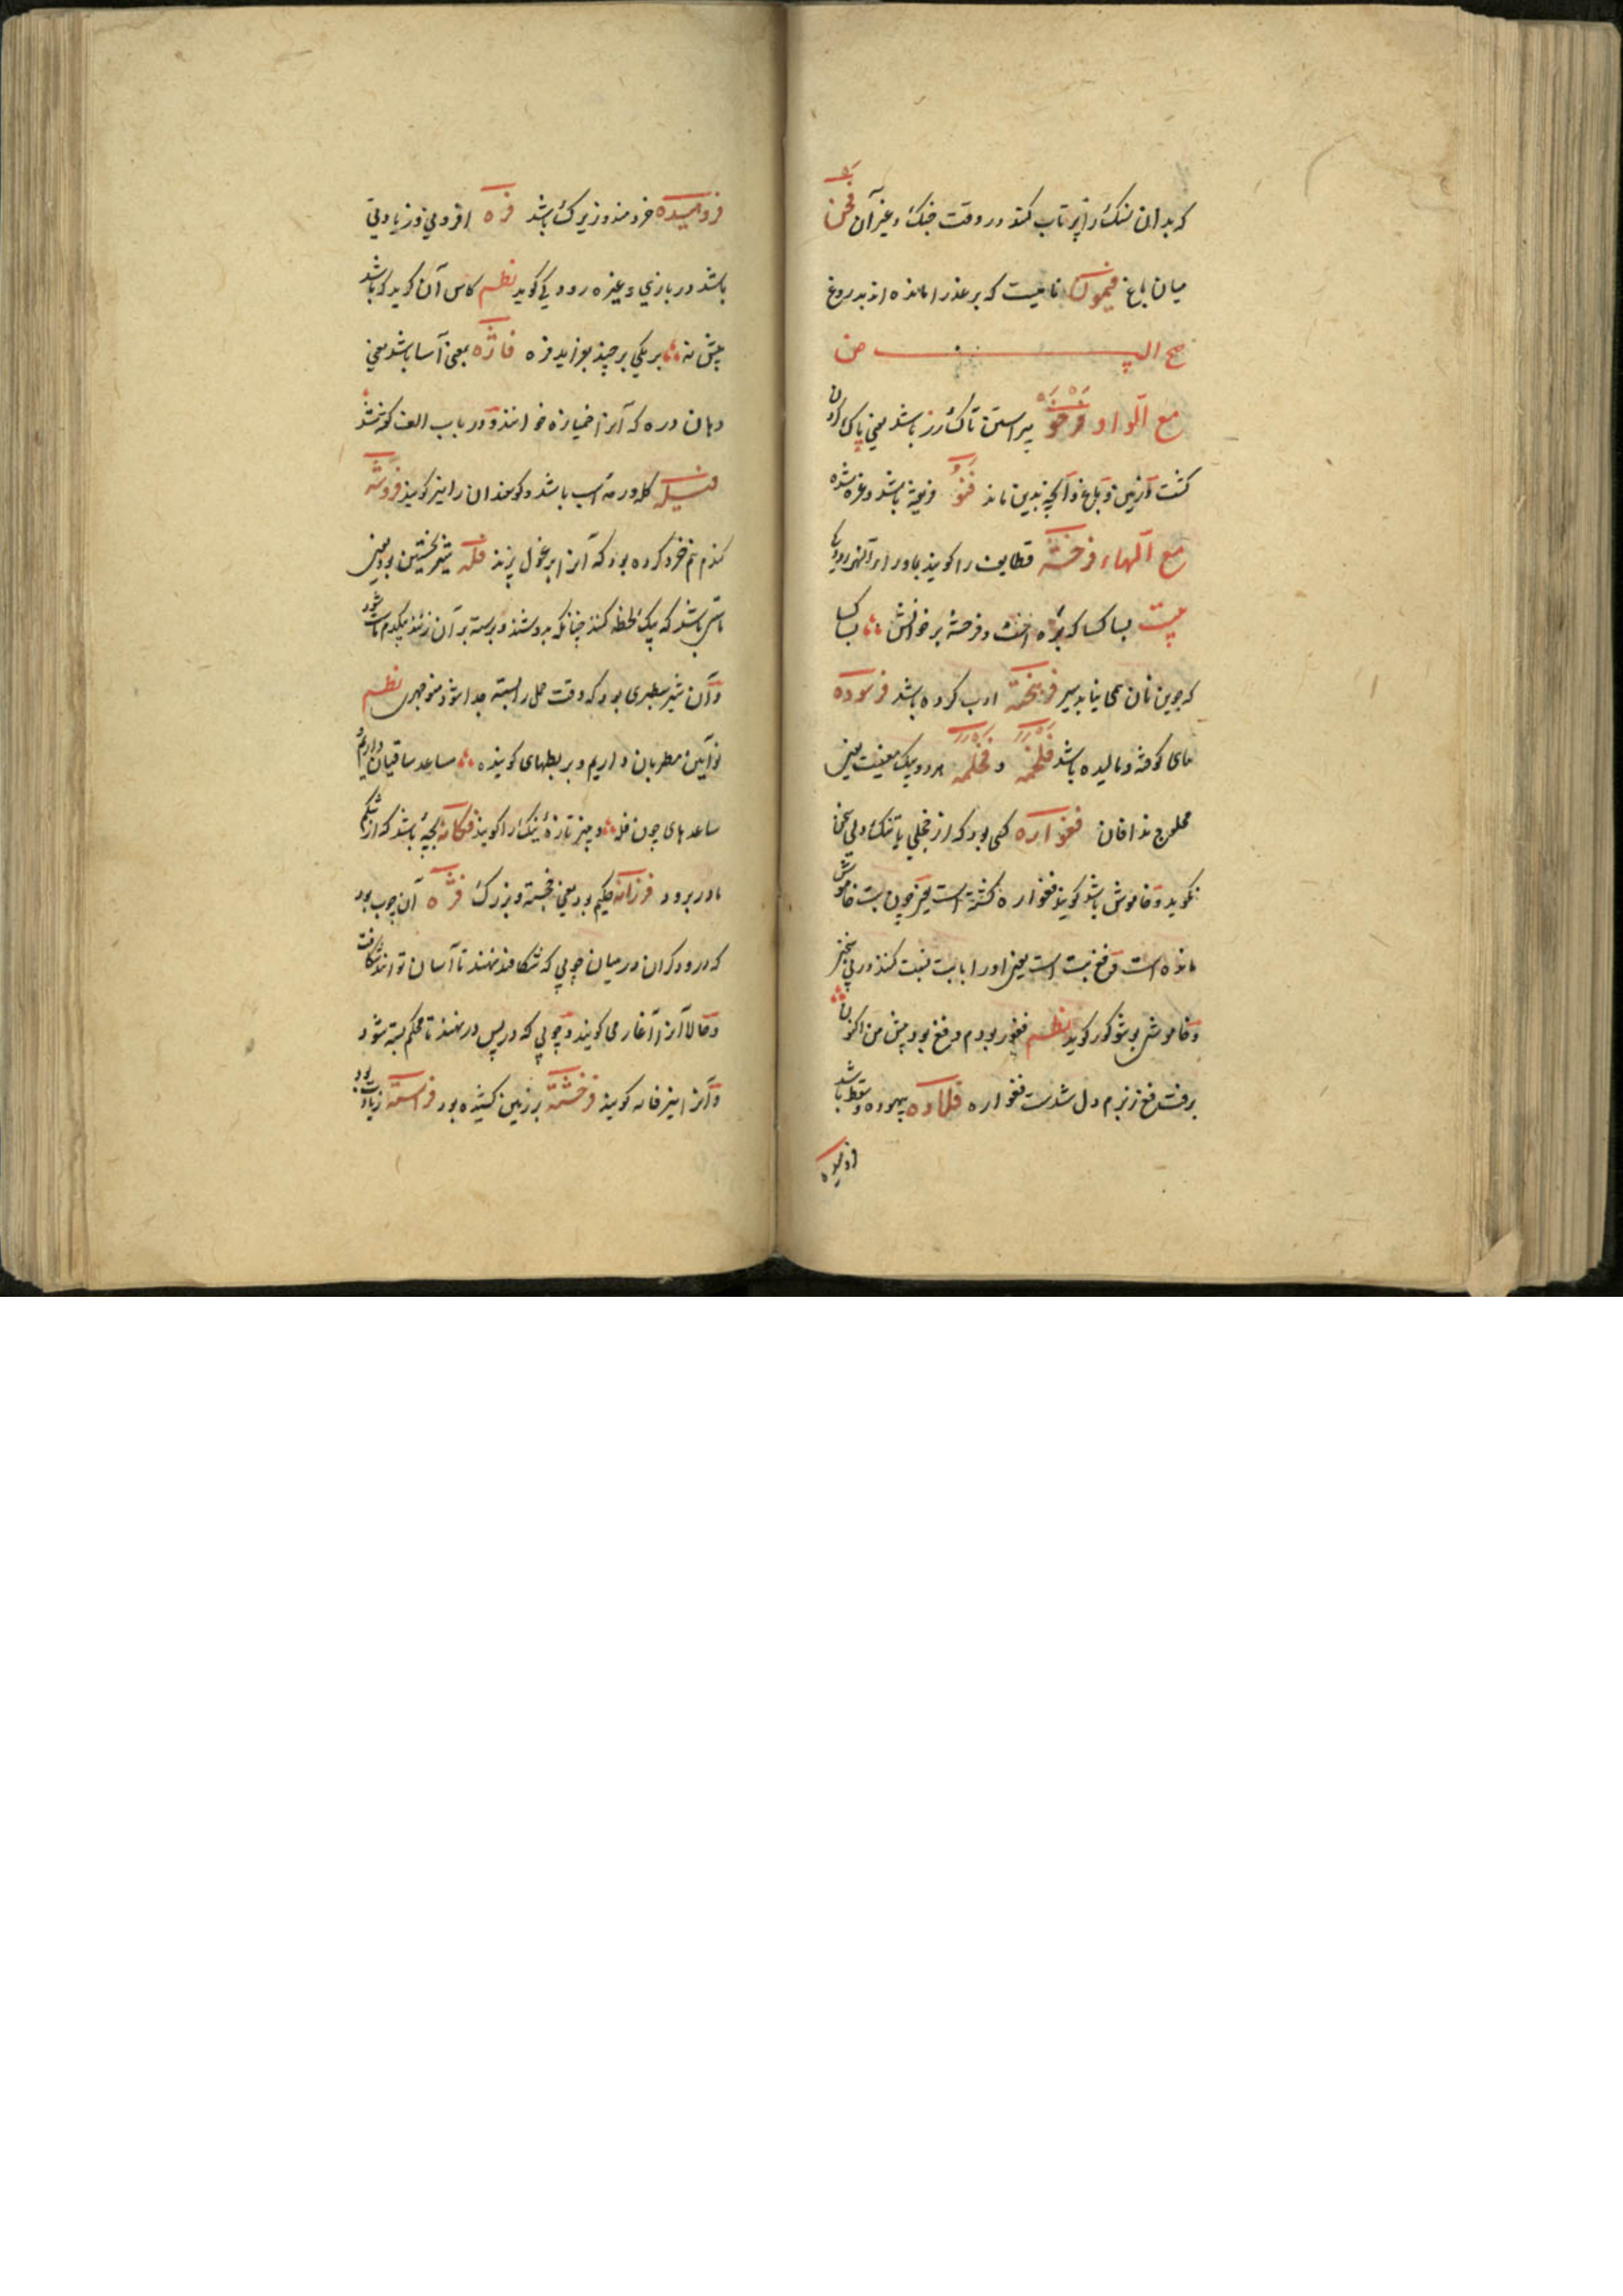 که بدان سنک را پرتاب کنند در وقت جنک و غیر آن فخن
میان باغ فیمون نامیست که بر عذرا مانده اند بدروغ
مع الواو فرخو پیراستن تاک رز باشد یعنی پاک کردن
کشت و زمین و باغ و آنچه بدین ماند فنو فریفته باشد و غره شده
مع الهاء فرخشته قطایف را کویند بماوراء النهر رودکی
بیت بسا کسا که بره است و فرخشه بر خوانش بسا کسا
که جوین نان همی نیابد سیر فریخته ادب کرده باشد فرسوده
های کوفته و مالیده باشد فلخمه و فخلمه هر دو بیک معنیست یعنی
محلوج ندافان فغواره کسی بود که از خجلی یا تنک دلی سخن
نکوید و خاموش باشد کویند فغواره کشته است یعنی چون بت خاموش
مانده است و فغ بت است یعنی او را با بت نسبت کنند در بی سخنی
و خاموشی بوشکور کوید نظم فغفور بودم و فغ بود پیش من اکنون
برفت فغ زبرم دل شدست فغواره فلاده بیهوده و سقط باشد
فروهیده خردمند و زیرک باشد فره افزونی و زیادتی
باشد در بازی و غیره رودکی کوید نظم کاس آن کوید که باشد
بیش نه بر یکی بر چند بفزاید فره فاژه بمعنی آسا باشد یعنی
دهان دره که آنرا خمیازه خوانند و در باب الف کفته شد
فسیله کله و رمه اسب باشد و کوسفندان را نیز کویند فروشه
کندم نیم خرد کرده بود که آنرا برغول پزند فله شیر نخستین بود یعنی
ماستی باشد که یک لحظه کنند چنانکه بدوشند و پرسته بر آن زنند یکدم ماست شود
و آن شیر سطبری بود که وقت حمل را بسته جدا شود منوجهری نظم
نوآیین مطربان داریم و بربطهای کوینده مساعد ساقیان داریم
ساعدهای چون فله و چیز تازه نیک را کویند فکانه بچه باشد که از شکم
مادر برود فرزانه حکیم بود یعنی خجسته و بزرک فژه آن چوب بود
که درودکران در میان چوبی که شکافند نهند تا آسان توانند شکافت
و حالا آنرا آغار می کویند و چوبی که در پس در نهند تا محکم بسته شود
و آنرا نیز فانه کویند فرخشته بر زمین کشیده بود فراسته زیادت بود